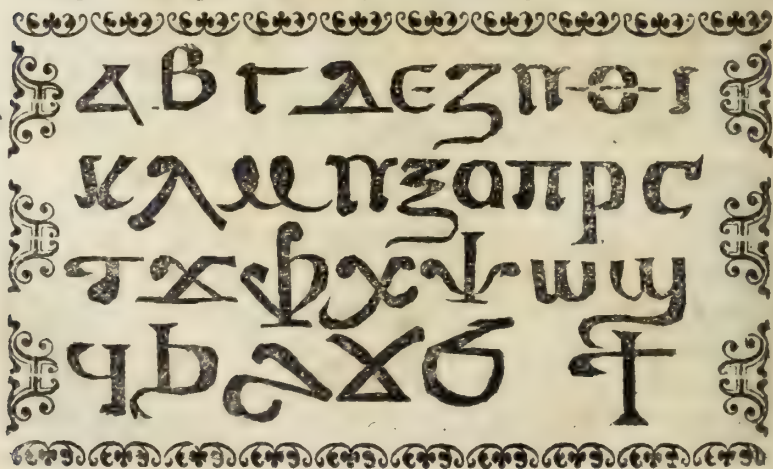 Ⲁ Ⲃ Ⲅ Ⲇ Ⲉ Ⲍ Ⲏ Ⲑ Ⲓ
Ⲕ Ⲗ Ⲙ Ⲛ Ⲝ Ⲟ Ⲡ Ⲣ Ⲥ
Ⲧ Ⲩ Ⲫ Ⲭ Ⲯ Ⲱ Ϣ
Ϥ Ϧ Ϩ Ϫ Ϭ Ϯ